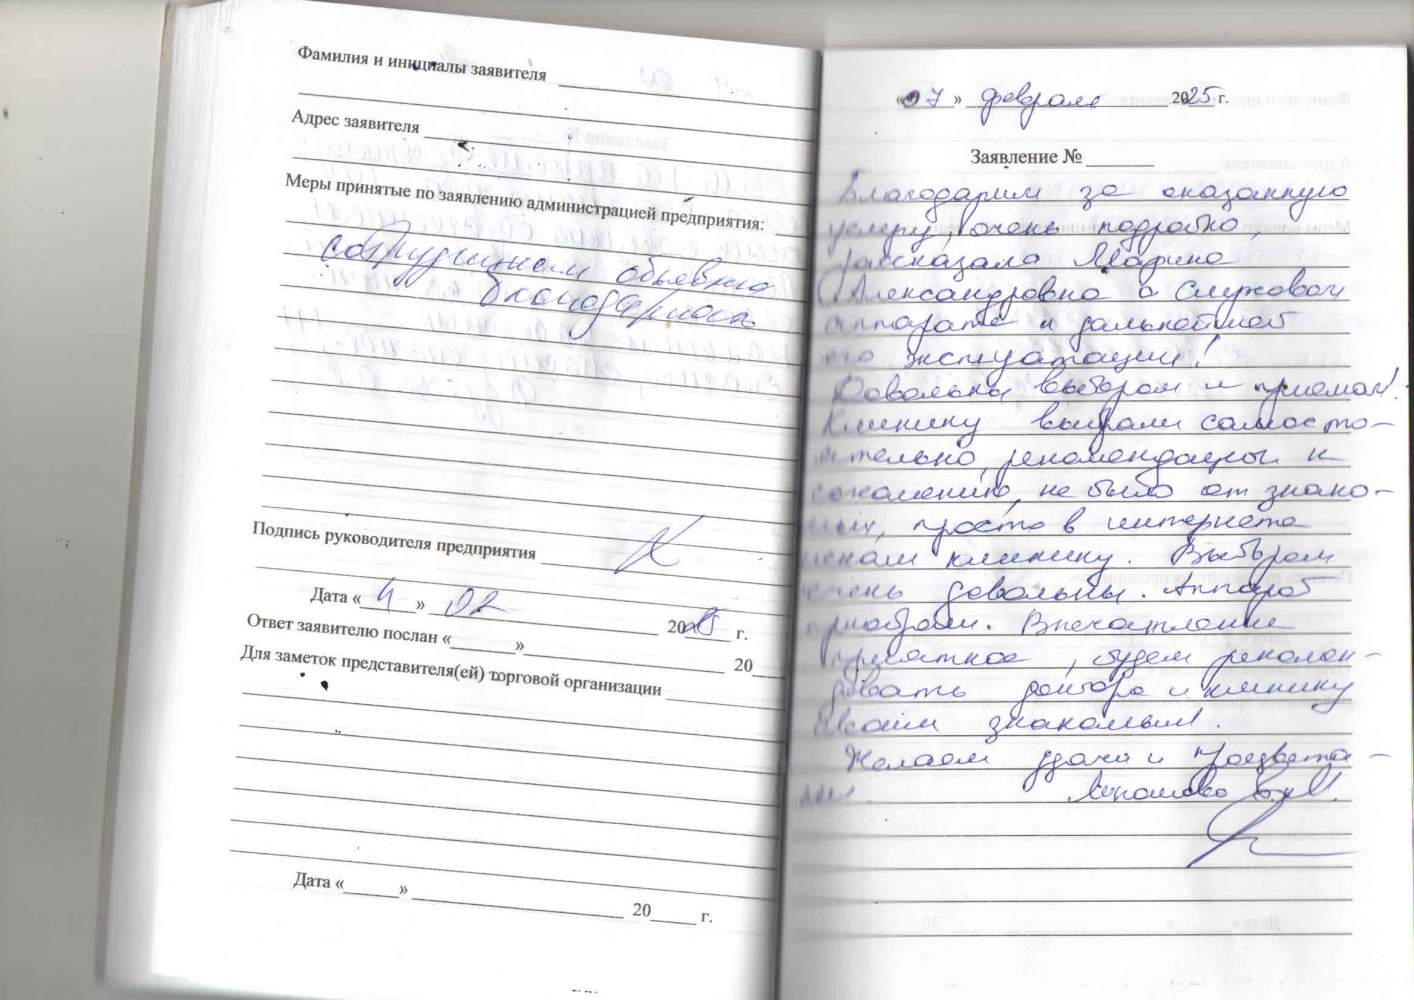 Фамилия и инициалы заявителя
Адрес заявителя
Меры принятые по заявлению администрацией предприятия:
сотрудникам объявлена
благодарность
Подпись руководителя предприятия
Дата « 4 » 02 2025 г.
Ответ заявителю послан « » 20
Для заметок представителя(ей) торговой организации
Дата « » 20 г.
«07» февраля 2025 г.
Заявление №
Благодарим за оказанную
услугу, очень подробно,
рассказала Марина
Александровна о слуховом
аппарате и дальнейшей
его эксплуатации!
Довольны выбором и приемом!
Клинику выбрали самосто-
ятельно, рекомендации к
сожалению, не было от знако-
мых, просто в интернете
искали клинику. Выбором
очень довольны. Аппарат
приобрели. Впечатление
приятное, будем рекомен-
довать доктора и клинику
своим знакомым.
Желаем удачи и процвета-
ния.